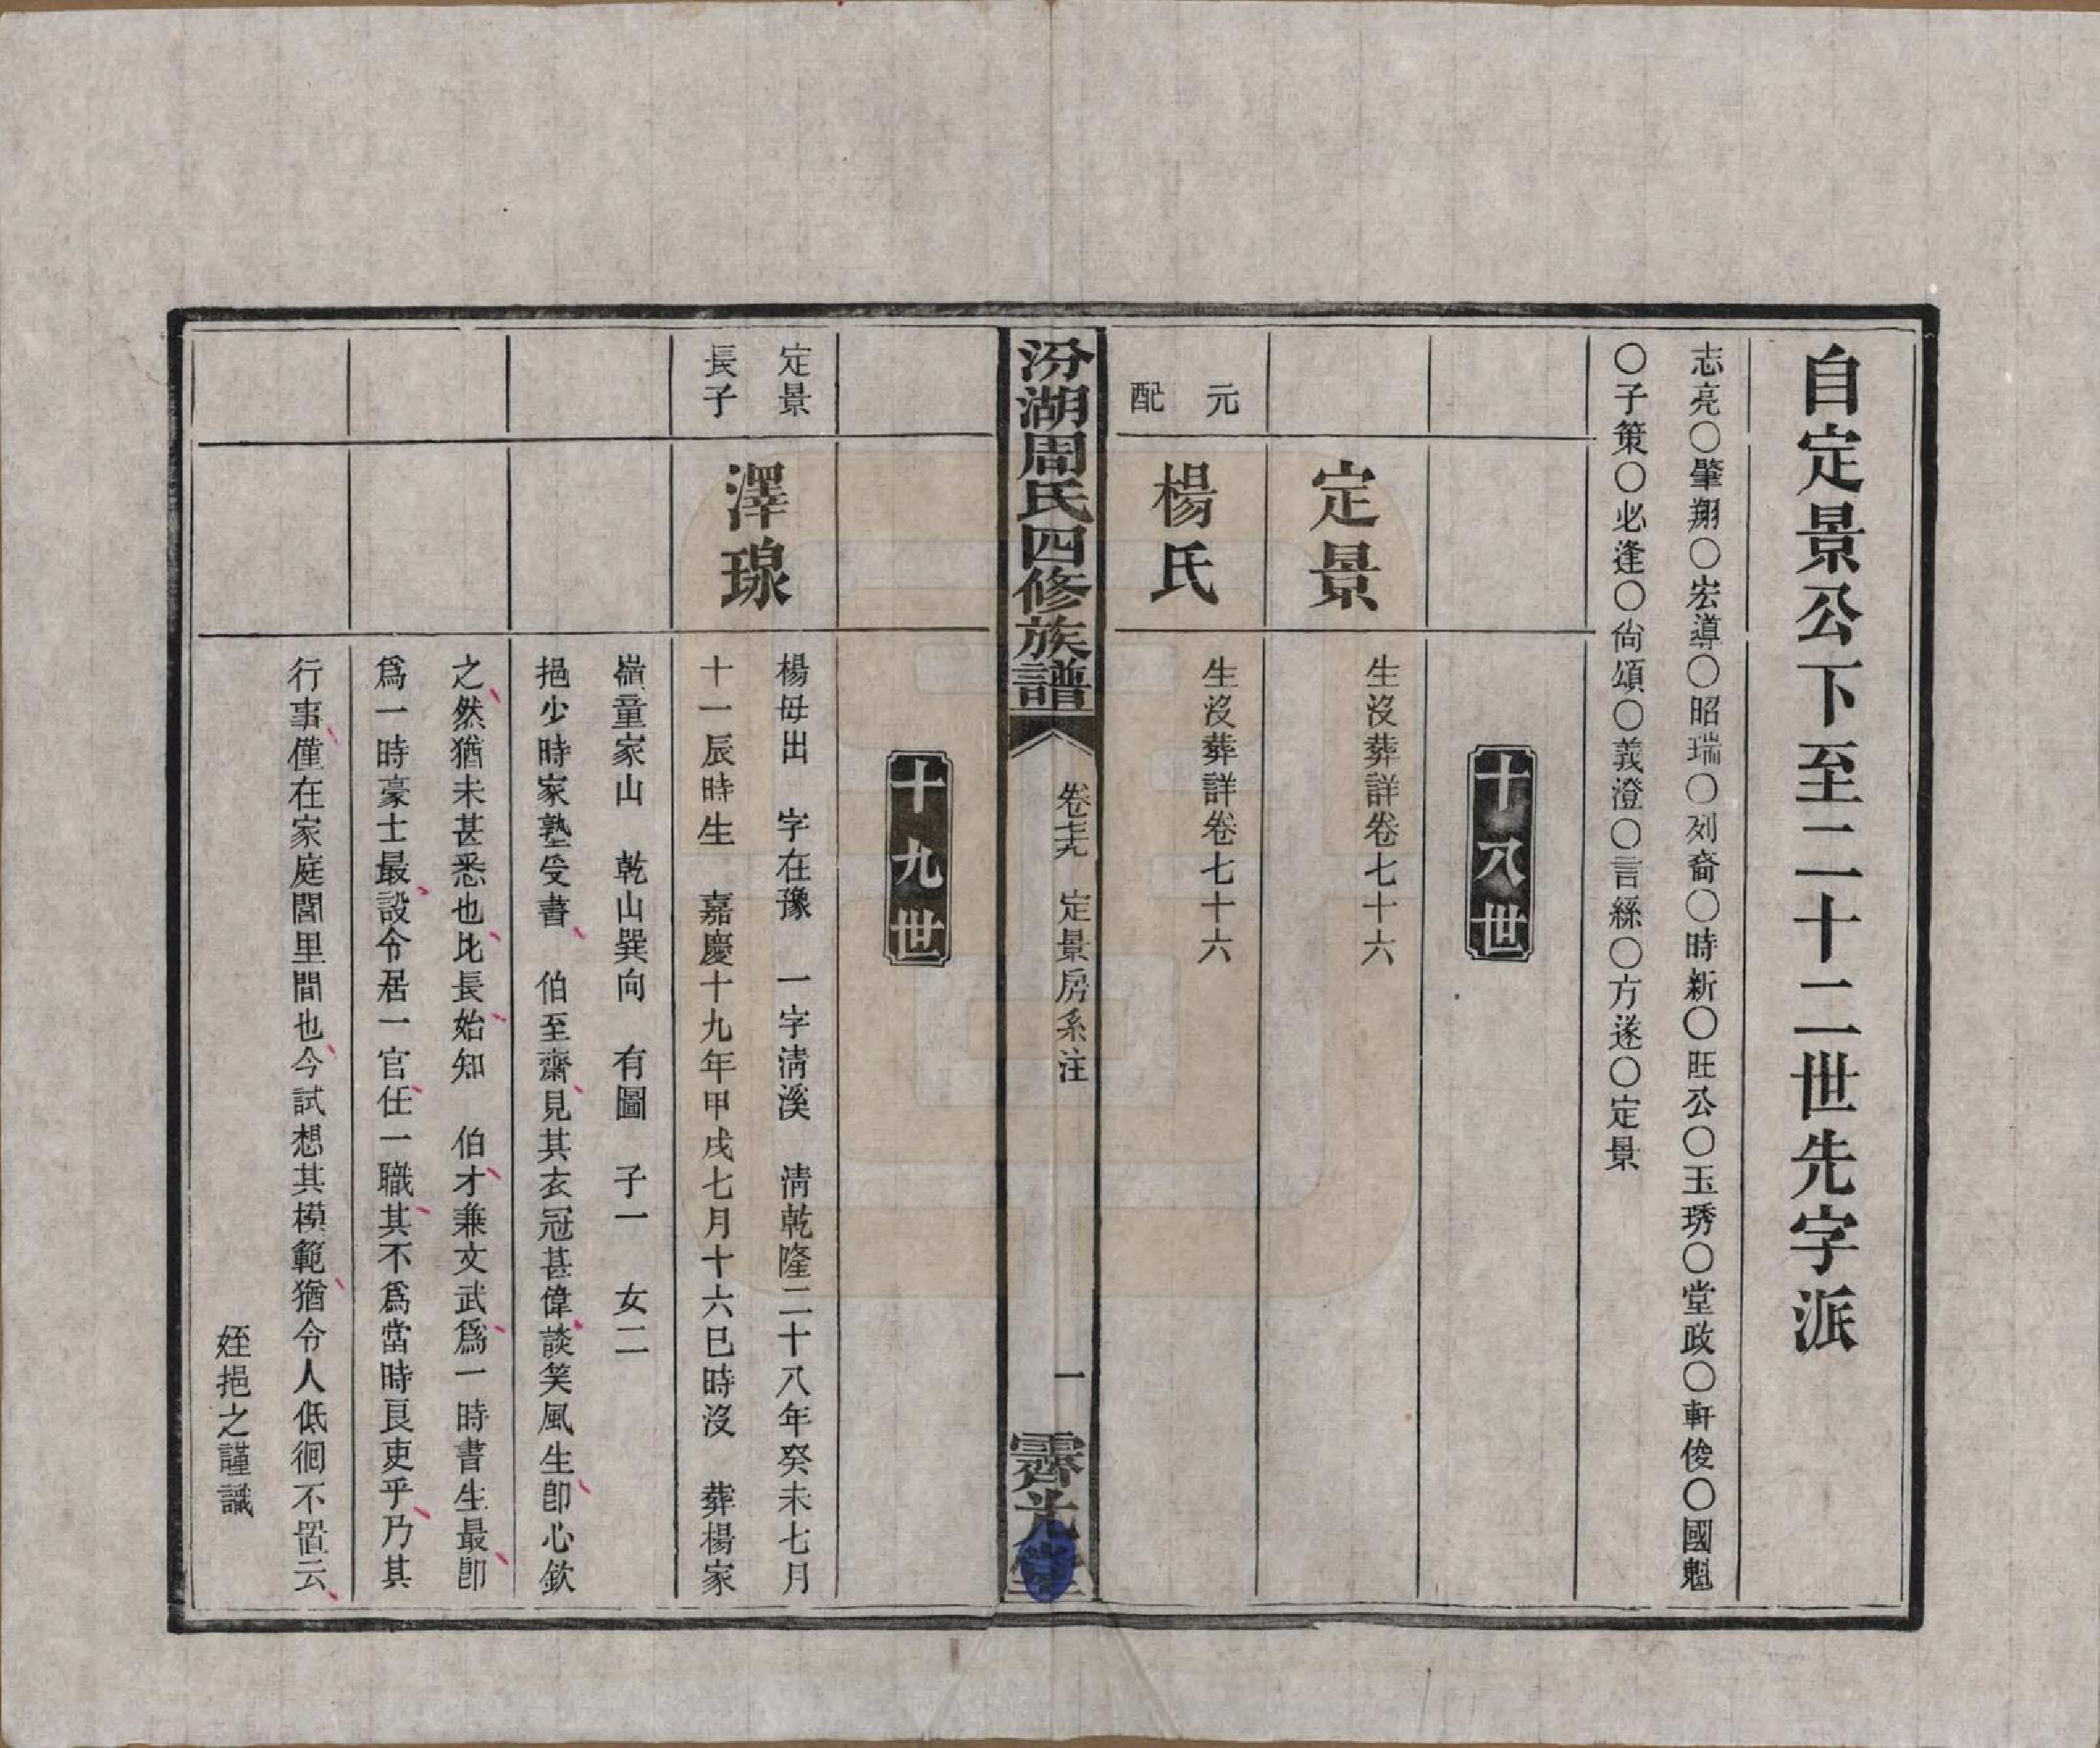 自定景公下至二十二世先字派
志亮〇肇翔〇宏導〇昭瑞〇列裔〇時新〇旺公〇玉琇〇堂政〇軒俊〇國魁
〇子策〇必逢〇尙頌〇義澄〇言繇〇方遂〇定景
十八世
定景
生沒葬詳卷七十六
元
配
楊氏
生沒葬詳卷七十六
汾湖周氏四修族譜
卷七十九
定景房系注
一
霽光堂
十九世
定景
長子
澤瑔
楊毋出 字在豫 一字淸溪 淸乾隆二十八年癸未七月
十一辰時生 嘉慶十九年甲戌七月十六巳時沒 葬楊家
嶺童家山 乾山巽向 有圖 子一 女二
挹少時家塾受書 伯至齋見其衣冠甚偉談笑風生卽心欽
之然猶未甚悉也比長始知 伯才兼文武爲一時書生最卽
爲一時豪士最設令居一官任一職其不爲當時良吏乎乃其
行事僅在家庭閭里間也今試想其模範猶令人低徊不置云
姪挹之謹識